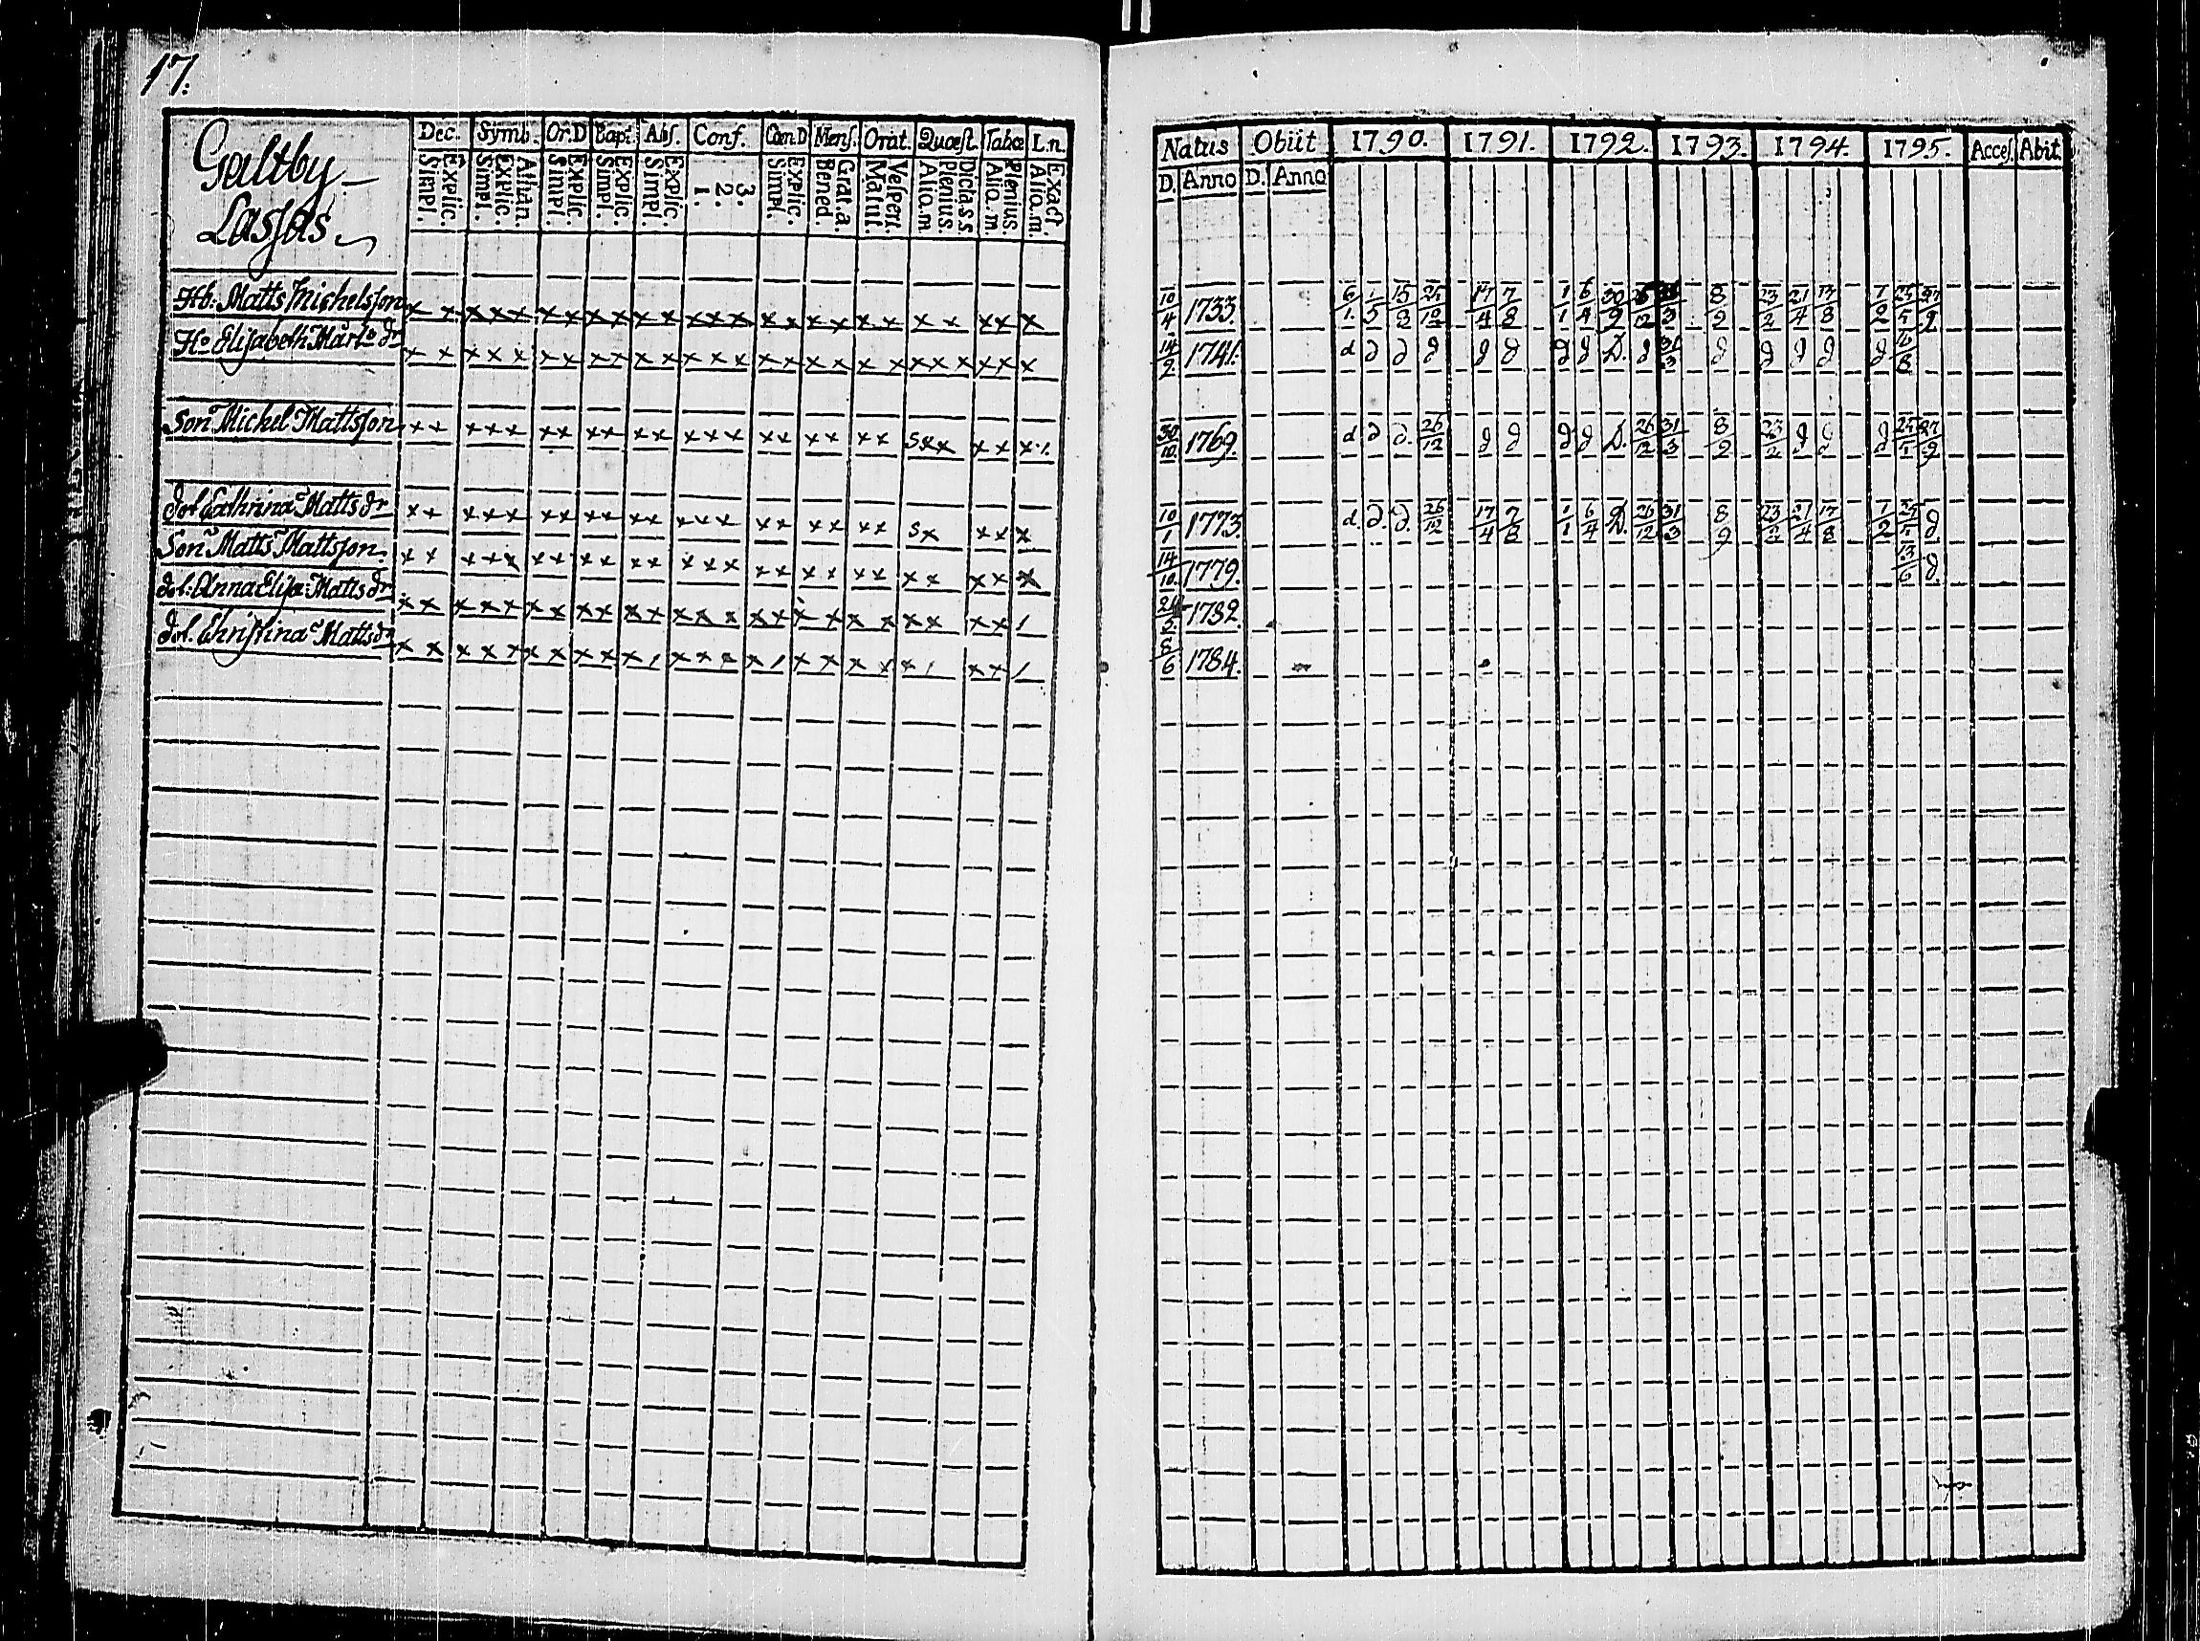 17.
Galtby
Lassas
Dec. Symb. Or.D Bapt. Abs. Conf. Cœn.D Mens. Orat. Quæst. Tabæ L.n.
Simpl. Explic. Simpl. Explic. Athan. Simpl. Explic. Simpl. Explic. Simpl. Explic. 1. 2. 3. Simpl. Explic. Bened. Grat.a. Matut. Vespert. Aliq.m Plenius Dict.a.s.s. Aliq.m Plenius Aliq.m. Exact.
Hb. Matts Michelsson x x x x x x x x x x x x x x x x x x x x x x x x x
Ho Elisabeth Marts dr x x x x x x x x x x x x x x x x x x x x x x x x x
Son Michel Mattsson x x x x x x x x x x x x x x x x x x x s x x x x x
dot Cathrina Matts dr x x x x x x x x x x x x x x x x x x x s x x x x
Son Matts Mattsson x x x x x x x x x x x x x x x x x x x x x x x x
dot. Anna Elisa Matts dr x x x x x x x x x x x x x x x x x x x x x x x
dot. Christina Matts dr x x x x x x x x x x x x x x x x x x x
Natus Obiit 1790. 1791. 1792. 1793. 1794. 1795. Acces. Abit.
D. Anno D. Anno
10/4 1733. 6/1 1/5 15/8 17/4 7/8 1/1 6/4 30/9 8/9 23/2 21/4 17/8 1/2 25/5 27/9
14/2 1741. d d d d d d d d D. d 31/3 d d d d d 6/8
30/10 1769. d d d. 26/12 d d d d D. 26/12 31/3 8/9 23/2 d d d 25/5 27/9
10/1 1773. d d. d 26/12 17/4 7/8 1/1 6/4 D. 26/12 31/3 8/9 23/2 21/4 17/8 1/2 25/5 d
14/10 1779. 13/6 d
1782
6/6 1784.